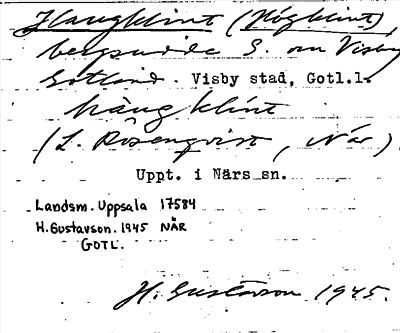 Haugklint (Högklint),
bergsudde S. om Visby
Gotland. Visby stad, Gotl.l.
häugklint
(L. Rosenqvist, När)
Uppt. i Närs sn.
Landsm. Uppsala 17584
H. Gustavson. 1945 NÄR
GOTL.
H. Gustavson 1945.